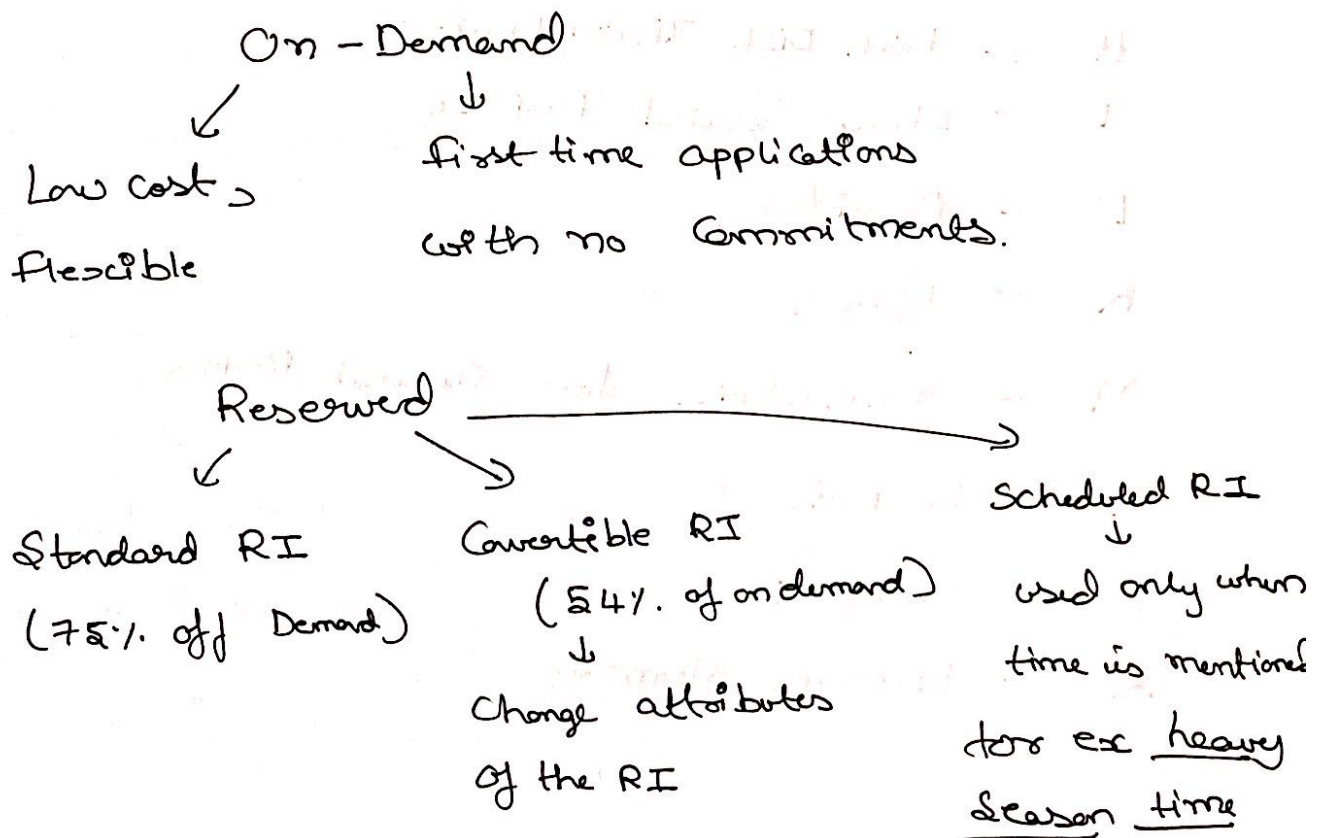 On - Demand
Low cost,
flexible
first time applications
with no Commitments.
Reserved
Standard RI
(75% off Demand)
Covertible RI
(54% of on demand)
Change attributes
of the RI
Scheduled RI
used only when
time is mentioned
for ex heavy
Season time